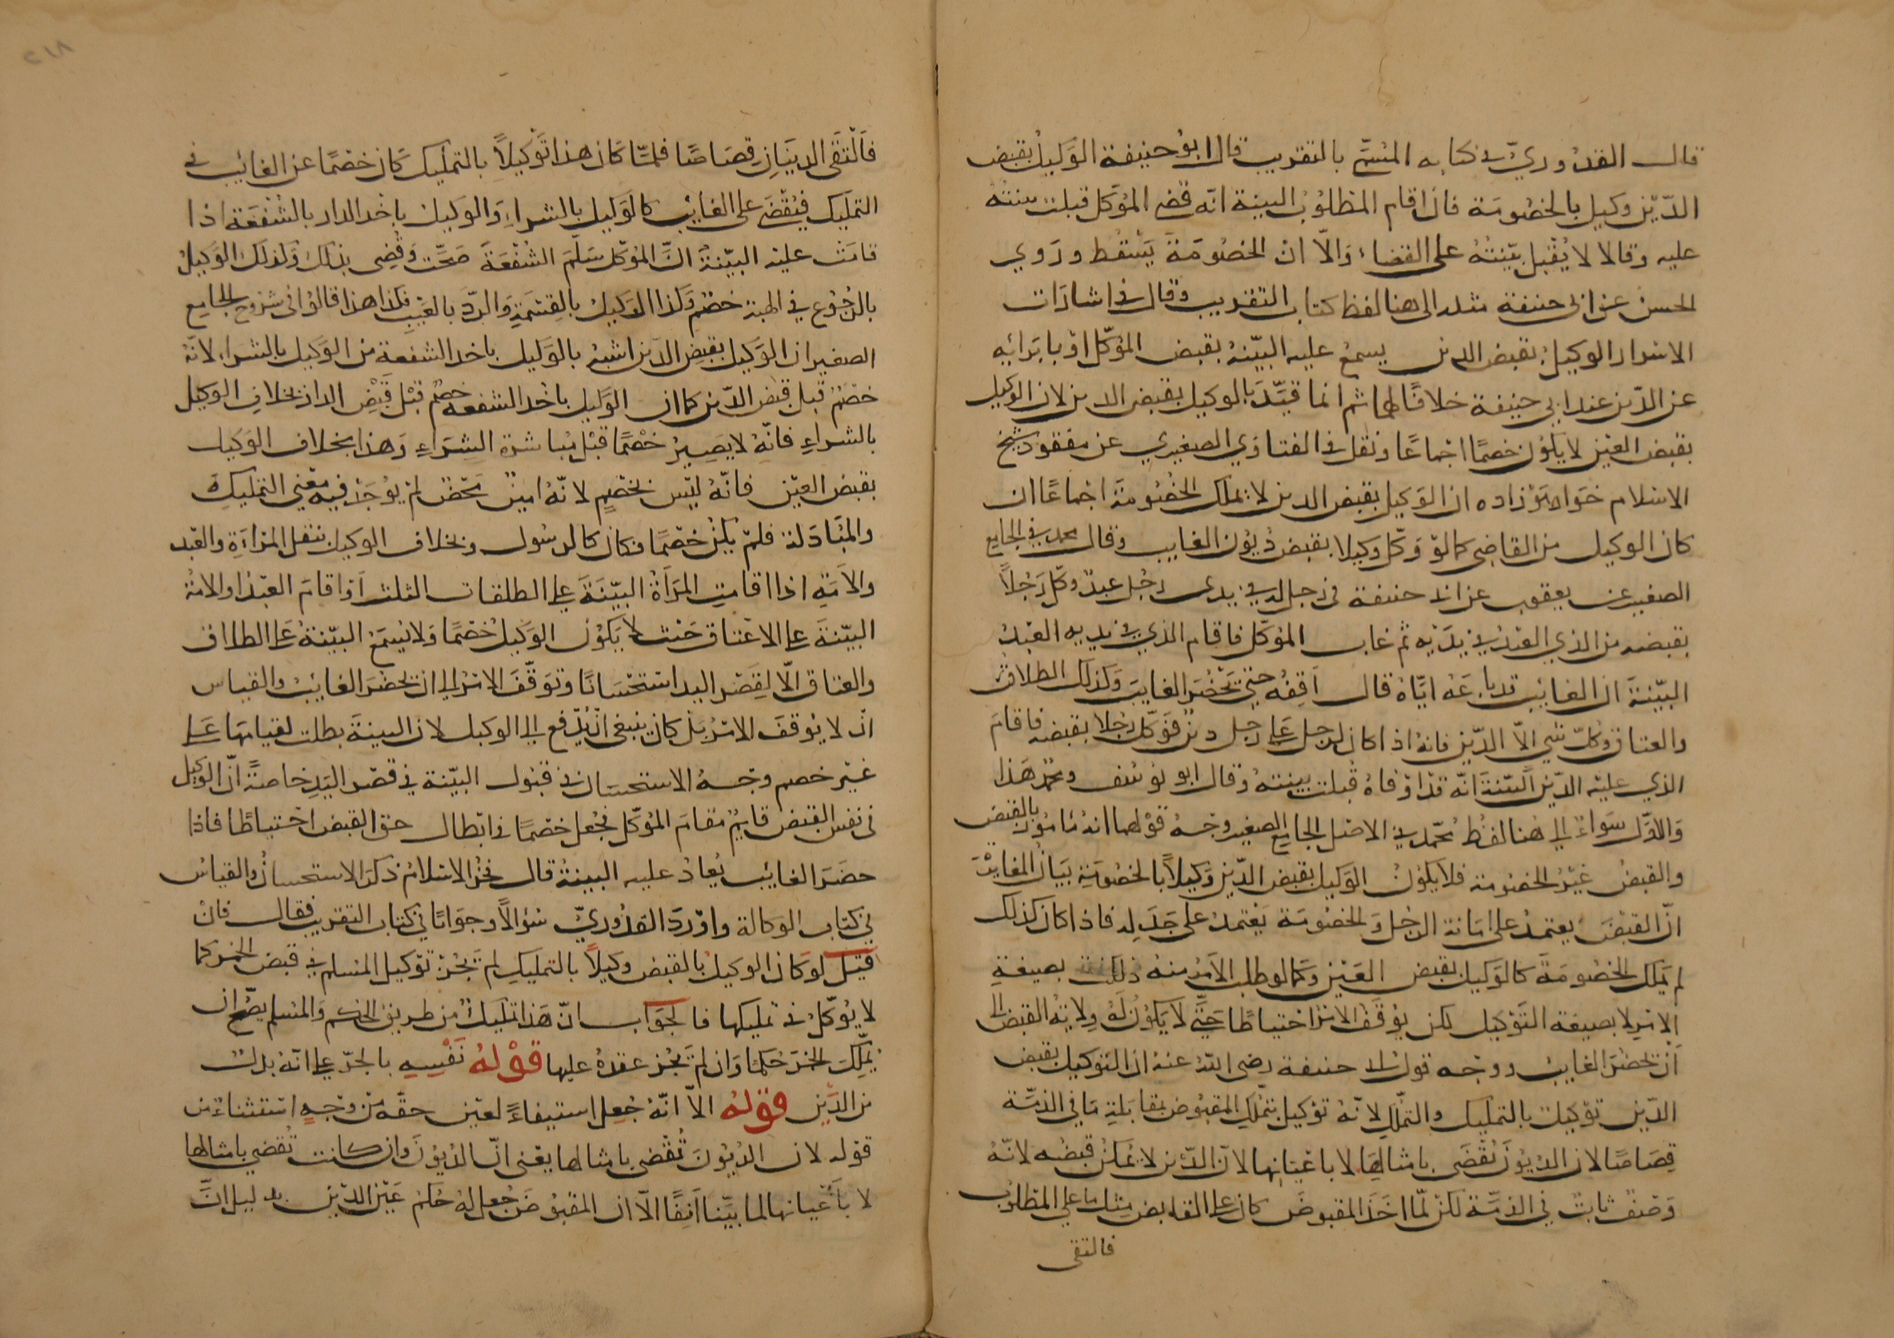 قال القدوريّ في كتابه المسمّى بالتقريب قال ابو حنيفة الوكيل بقبض
الدّين وكيل بالخصومة فان اقام المطلوب البينة انه قضى الموكل قبلت بينته
عليه وقالا لا يُقبل بيّنته على القضاء والّا ان الخصومة يسقط وروي
الحسن عن ابي حنيفة مثله الى هنا لفظ كتاب التقريب وقال في اشارات
الاسرار الوكيل بقبض الدين يسمع عليه البيّنة بقبض الموكّل او بابرائه
عن الدّين عند ابي حنيفة خلافًا لهما ثم انما قيّد بالوكيل بقبض الدين لان الوكيل
بقبض العين لا يكون خصمًا اجماعًا ونقل في الفتاوي الصغيري عن مفقود شيخ
الاسلام خواهر زاده ان الوكيل بقبض الدين لا يملك الخصومة اجماعًا ان
كان الوكيل من القاضي كما لو وكّل وكيلا بقبض ديون الغايب وقال محمد في الجامع
الصغير عن يعقوب عن ابي حنيفة في رجل في يدى رجل عبد وكّل رَجُلاً
بقبضه من الذي العبد في يديه ثم غاب الموكّل فاقام الذي في يديه العبد
البيّنة ان الغائب قد باعه ايّاه قال اقفه حتى يحضر الغايب وكذلك الطلاق
والعتاق وكلّ شي الّا الدّين فانه اذا كان لرجل على رجل دين فوكّل رجلا بقبضه فاقام
الذي عليه الدّين البيّنة انّه قد اوفاه قبلت بينته وقال ابو يوسف ومحمد هذا
والاوّل سواء الى هنا لفظ محمّد في الاصل الجامع الصغير وجه قولهما انه مامور بالقبض
والقبض غير الخصومة فلا يكون الوكيل بقبض الدّين وكيلاً بالخصومة بيان المغايرة
انّ القبض يعتمد على امانة الرجل والخصومة يعتمد على جَدَله فاذا كان كذلك
لم يملك الخصومة كالوكيل بقبض العين وكما لو طلب الامر منه ذلك بصيغة
الامر لا بصيغة التوكيل لكن يوقف الامر احتياطًا حتّى لا يكون له ولاية القبض الى
أن يحضر الغايب ووجه قول ابي حنيفة رضي الله عنه ان التوكيل بقبض
الدّين توكيل بالتمليك والتملّك لانّه توكيل بتملك المقبوض بمقابلة ما في الذمّة
قصاصًا لان الديون تُقضى بامثالها لا باعيانها لانّ الدّين لا يمكن قبضه لانّه
وَصف ثابت في الذمّة لكن لمّا اخذ المقبوض كان على القابض مثل ما على المطلوب
فالتقى
فالتقى الدينان قصاصًا فلمّا كان هذا توكيلاً بالتمليك كان خصمًا عن الغائب في
التمليك فيقضى على الغائب كالوكيل بالشراء والوكيل باخذ الدار بالشفعة اذا
قامت عليه البيّنة انّ الموكّل سلّم الشفعة صحّت وقضي بذلك وكذلك الوكيل
بالرجوع في الهبة خصم وكذا الوكيل بالقسمة والردّ بالعيب فكذا هذا قالوا في شروح الجامع
الصغير ان الوكيل بقبض الدّين اشبه بالوكيل باخذ الشفعة من الوكيل بالشراء لانّه
خصم قبل قبض الدّين كما ان الوكيل باخذ الشفعة خصم قبل قبض الدار بخلاف الوكيل
بالشراء فانّه لا يصير خصمًا قبل مباشرة الشراء وهذا بخلاف الوكيل
بقبض العين فانّه ليس بخصم لانّه امين محض لم يوجد فيه معنى التمليك
والمبادلة فلم يكن خصمًا فكان كالرسول وبخلاف الوكيل بنقل المرأة والعبد
والامة اذا اقامت المرأة البيّنة على الطلقات الثلث أو اقام العبد او الامة
البيّنة على الاعتاق حيث لا يكون الوكيل خصمًا ولا يسمع البيّنة على الطلاق
والعتاق الّا لقصر اليد استحسانًا وتوقّف الامر الى ان يحضر الغائب والقياس
ان لا يوقف الامر بل كان ينبغي ان يدفع الى الوكيل لان البينة بطلت لقيامها على
غير خصم وجه الاستحسان في قبول البيّنة في قصر اليد خاصة انّ الوكيل
في نفس القبض قايم مقام الموكّل فجعل خصمًا في ابطال حق القبض احتياطًا فاذا
حضر الغائب يُعاد عليه البينة قال فخر الاسلام ذكر الاستحسان والقياس
في كتاب الوكالة واورد القدوريّ سؤالاً وجوابًا في كتاب التقريب فقال فان
قيل لو كان الوكيل بالقبض وكيلاً بالتمليك لم يجز توكيل المسلم في قبض الخمر كما
لا يوكّل في تمليكها فالجواب انّ هذا تمليك من طريق الحكم والمسلم يصحّ ان
يملك الخمر حكمًا وان لم يجز عقده عليها قوله نفسه بالجرّ على انّه بدل
من الدّين قوله الّا انّه جُعل استيفاءً لعين حقّه من وجه استثناء من
قوله لان الديون تُقضى بامثالها يعني انّ الديون وان كانت تُقضي بامثالها
لا بأعيانها لما بيّنا آنفًا الّا ان المقبوض جُعل له حكم عين الدّين بدليل انّ